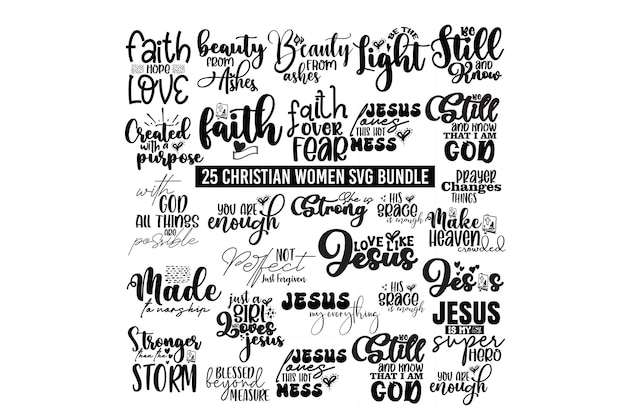 faith
HOPE
LOVE
beauty
FROM
Ashes
Beauty
FROM
ashes
BE THE
Light
Be
Still
AND
Know
Created
with a
purpose
faith
faith
OVER
FEAR
JESUS
loves
THIS HOT
MESS
Be
Still
AND KNOW
THAT I AM
GOD
25 CHRISTIAN WOMEN SVG BUNDLE
PRAYER
Changes
THINGS
with
GOD
ALL THINGS
are
possible
YOU ARE
enough
She is
Strong
HIS
GRACE
is enough
Make
HEAVEN
crowded
NOT
Perfect
Just Forgiven
LOVE LIKE
Jesus
Made
to worship
just a
GIRL
who
Loves
jesus
JESUS
my everything
HIS
GRACE
is enough
Jesus
JESUS
IS MY
super
HERO
Stronger
than the
STORM
BLESSED
beyond
MEASURE
JESUS
loves
THIS HOT
MESS
Be
Still
AND KNOW
THAT I AM
GOD
YOU ARE
enough